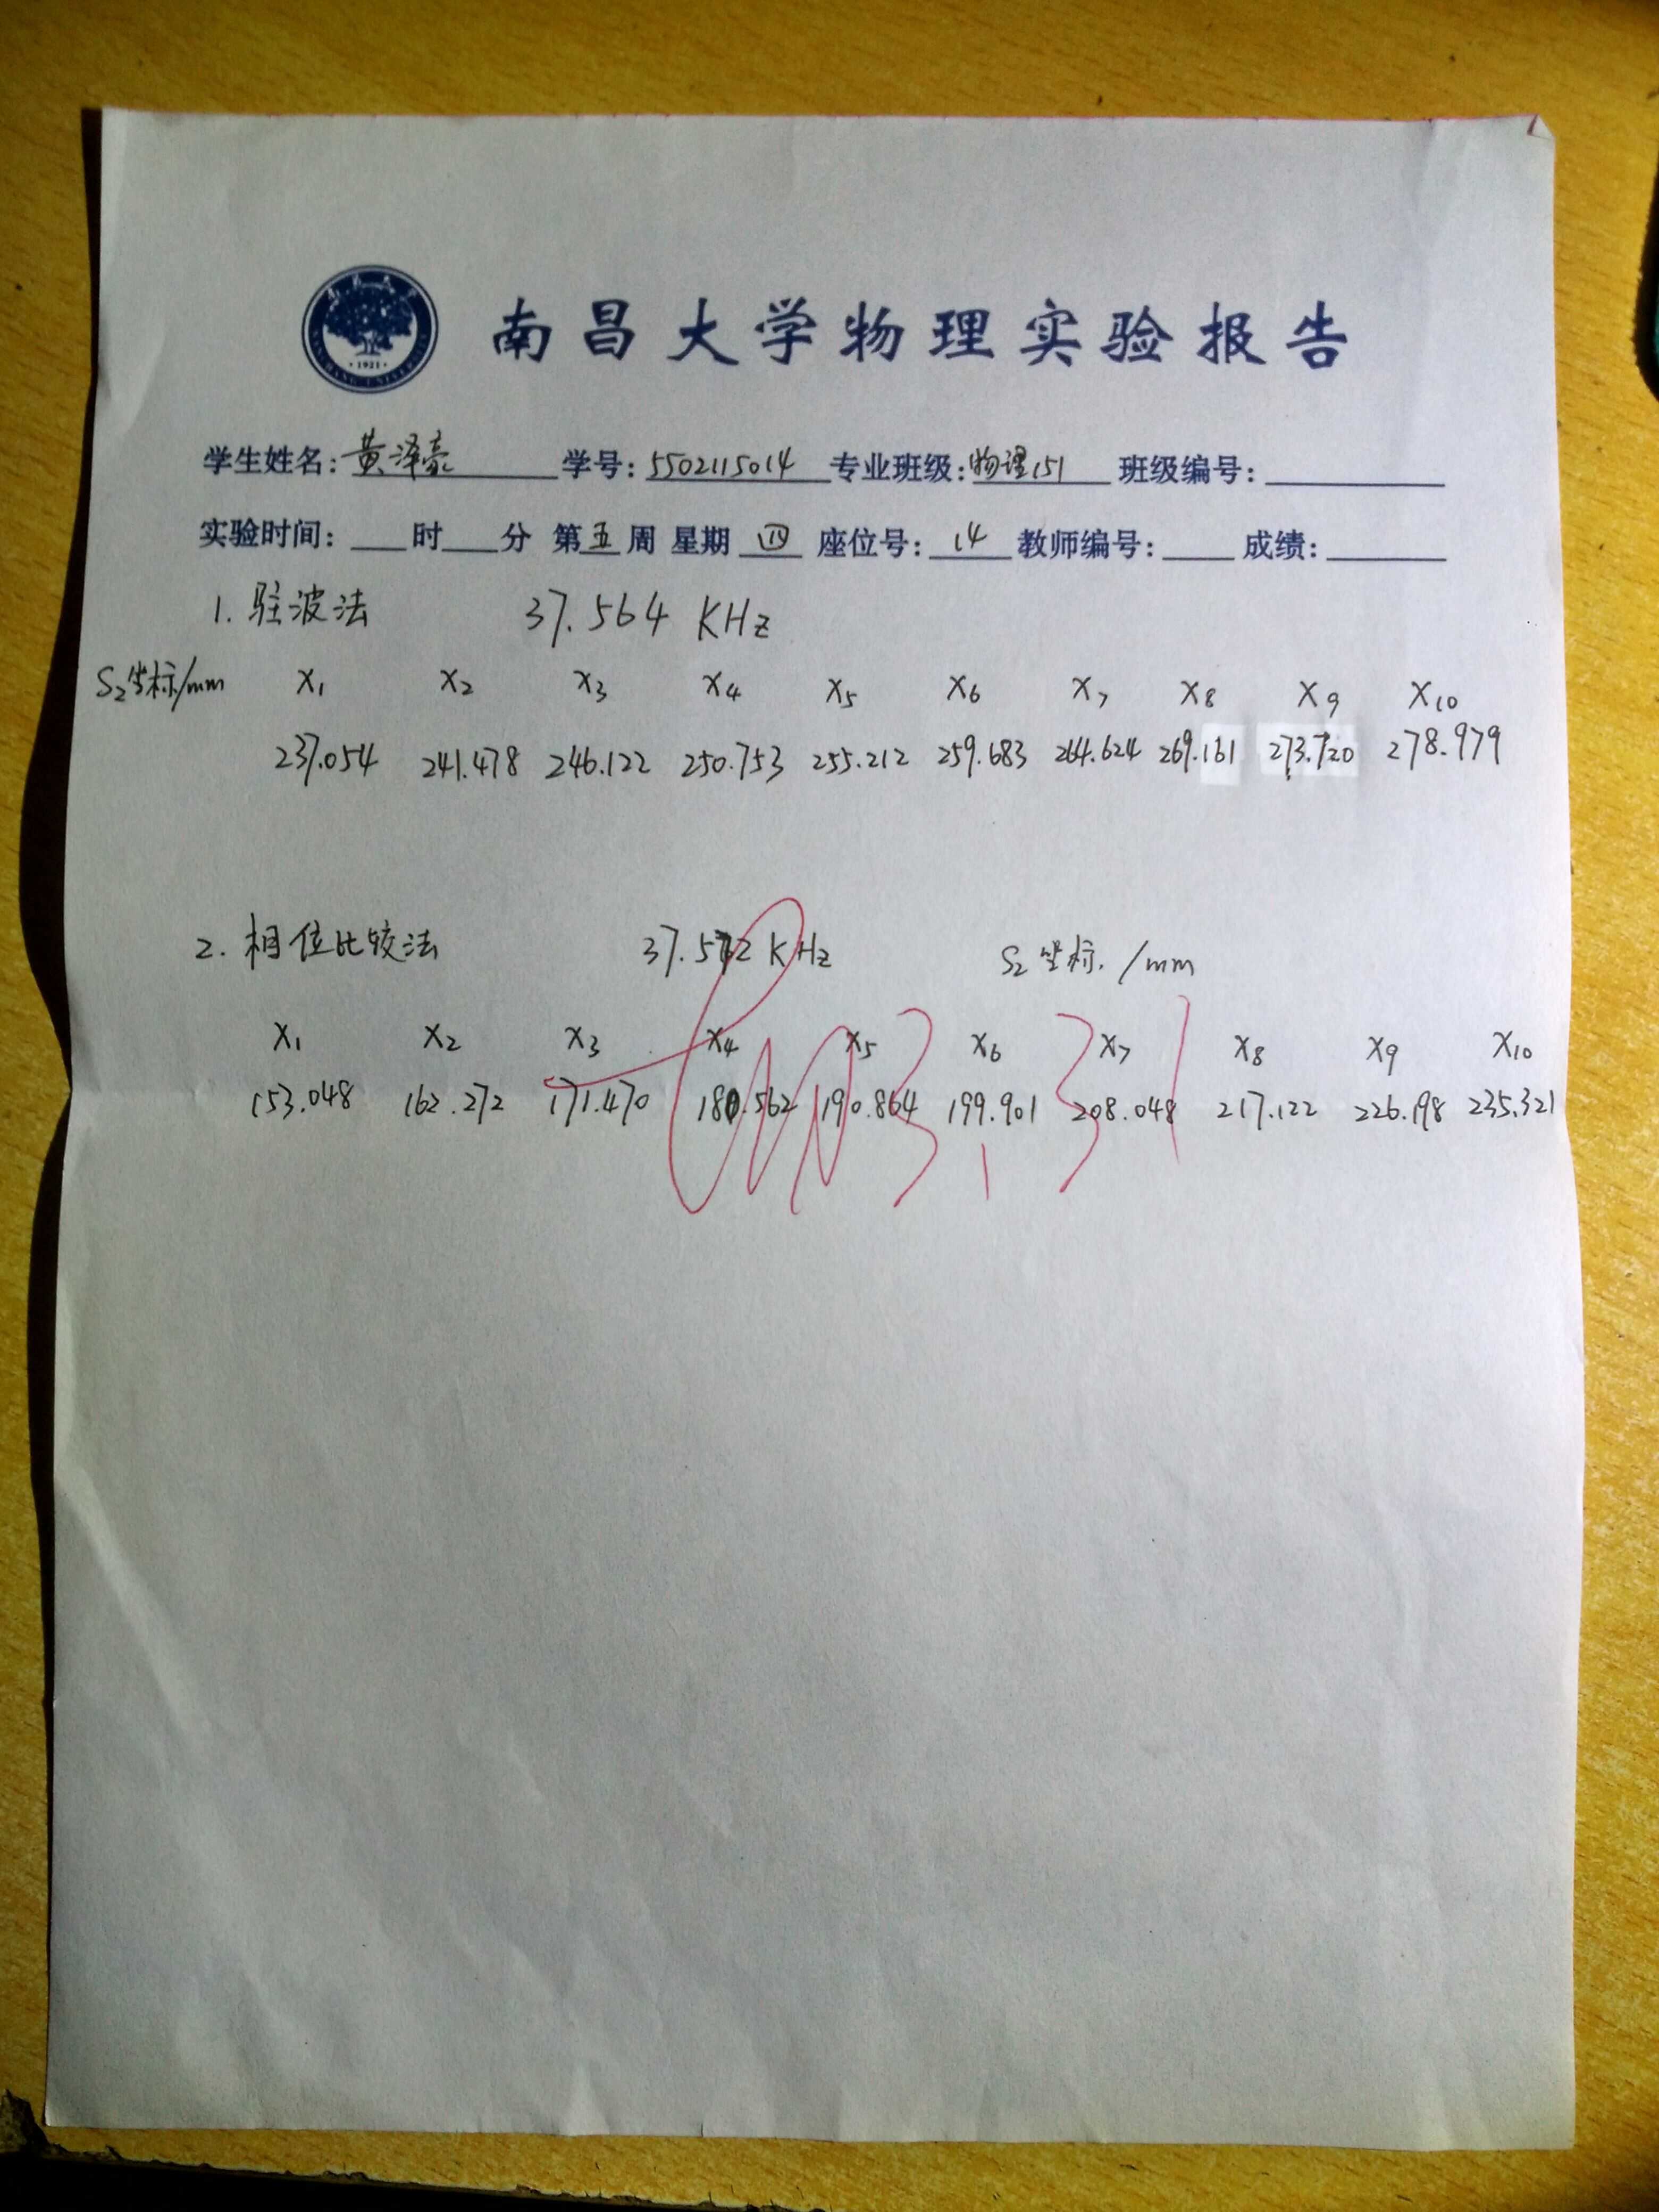 南昌大学物理实验报告
学生姓名：黄泽豪 学号：5502115014 专业班级：物理151 班级编号：
实验时间： 时 分 第五周 星期四 座位号：14 教师编号： 成绩：
1. 驻波法 37.564 KHz
S₂坐标/mm X₁ X₂ X₃ X₄ X₅ X₆ X₇ X₈ X₉ X₁₀
237.054 241.478 246.122 250.753 255.212 259.683 264.624 269.161 273.720 278.979
2. 相位比较法 37.572 KHz S₂坐标./mm
X₁ X₂ X₃ X₄ X₅ X₆ X₇ X₈ X₉ X₁₀
153.048 162.272 171.470 180.562 190.864 199.901 208.048 217.122 226.198 235.321